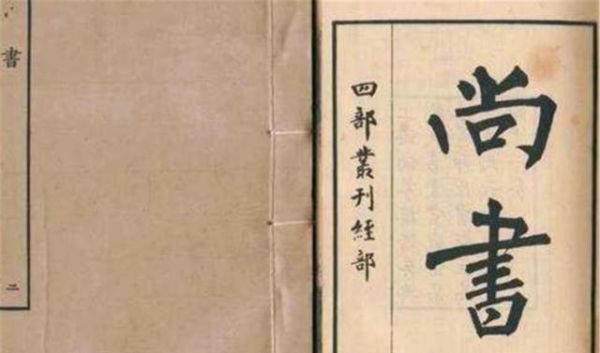 尚書
四部叢刊經部
書
二